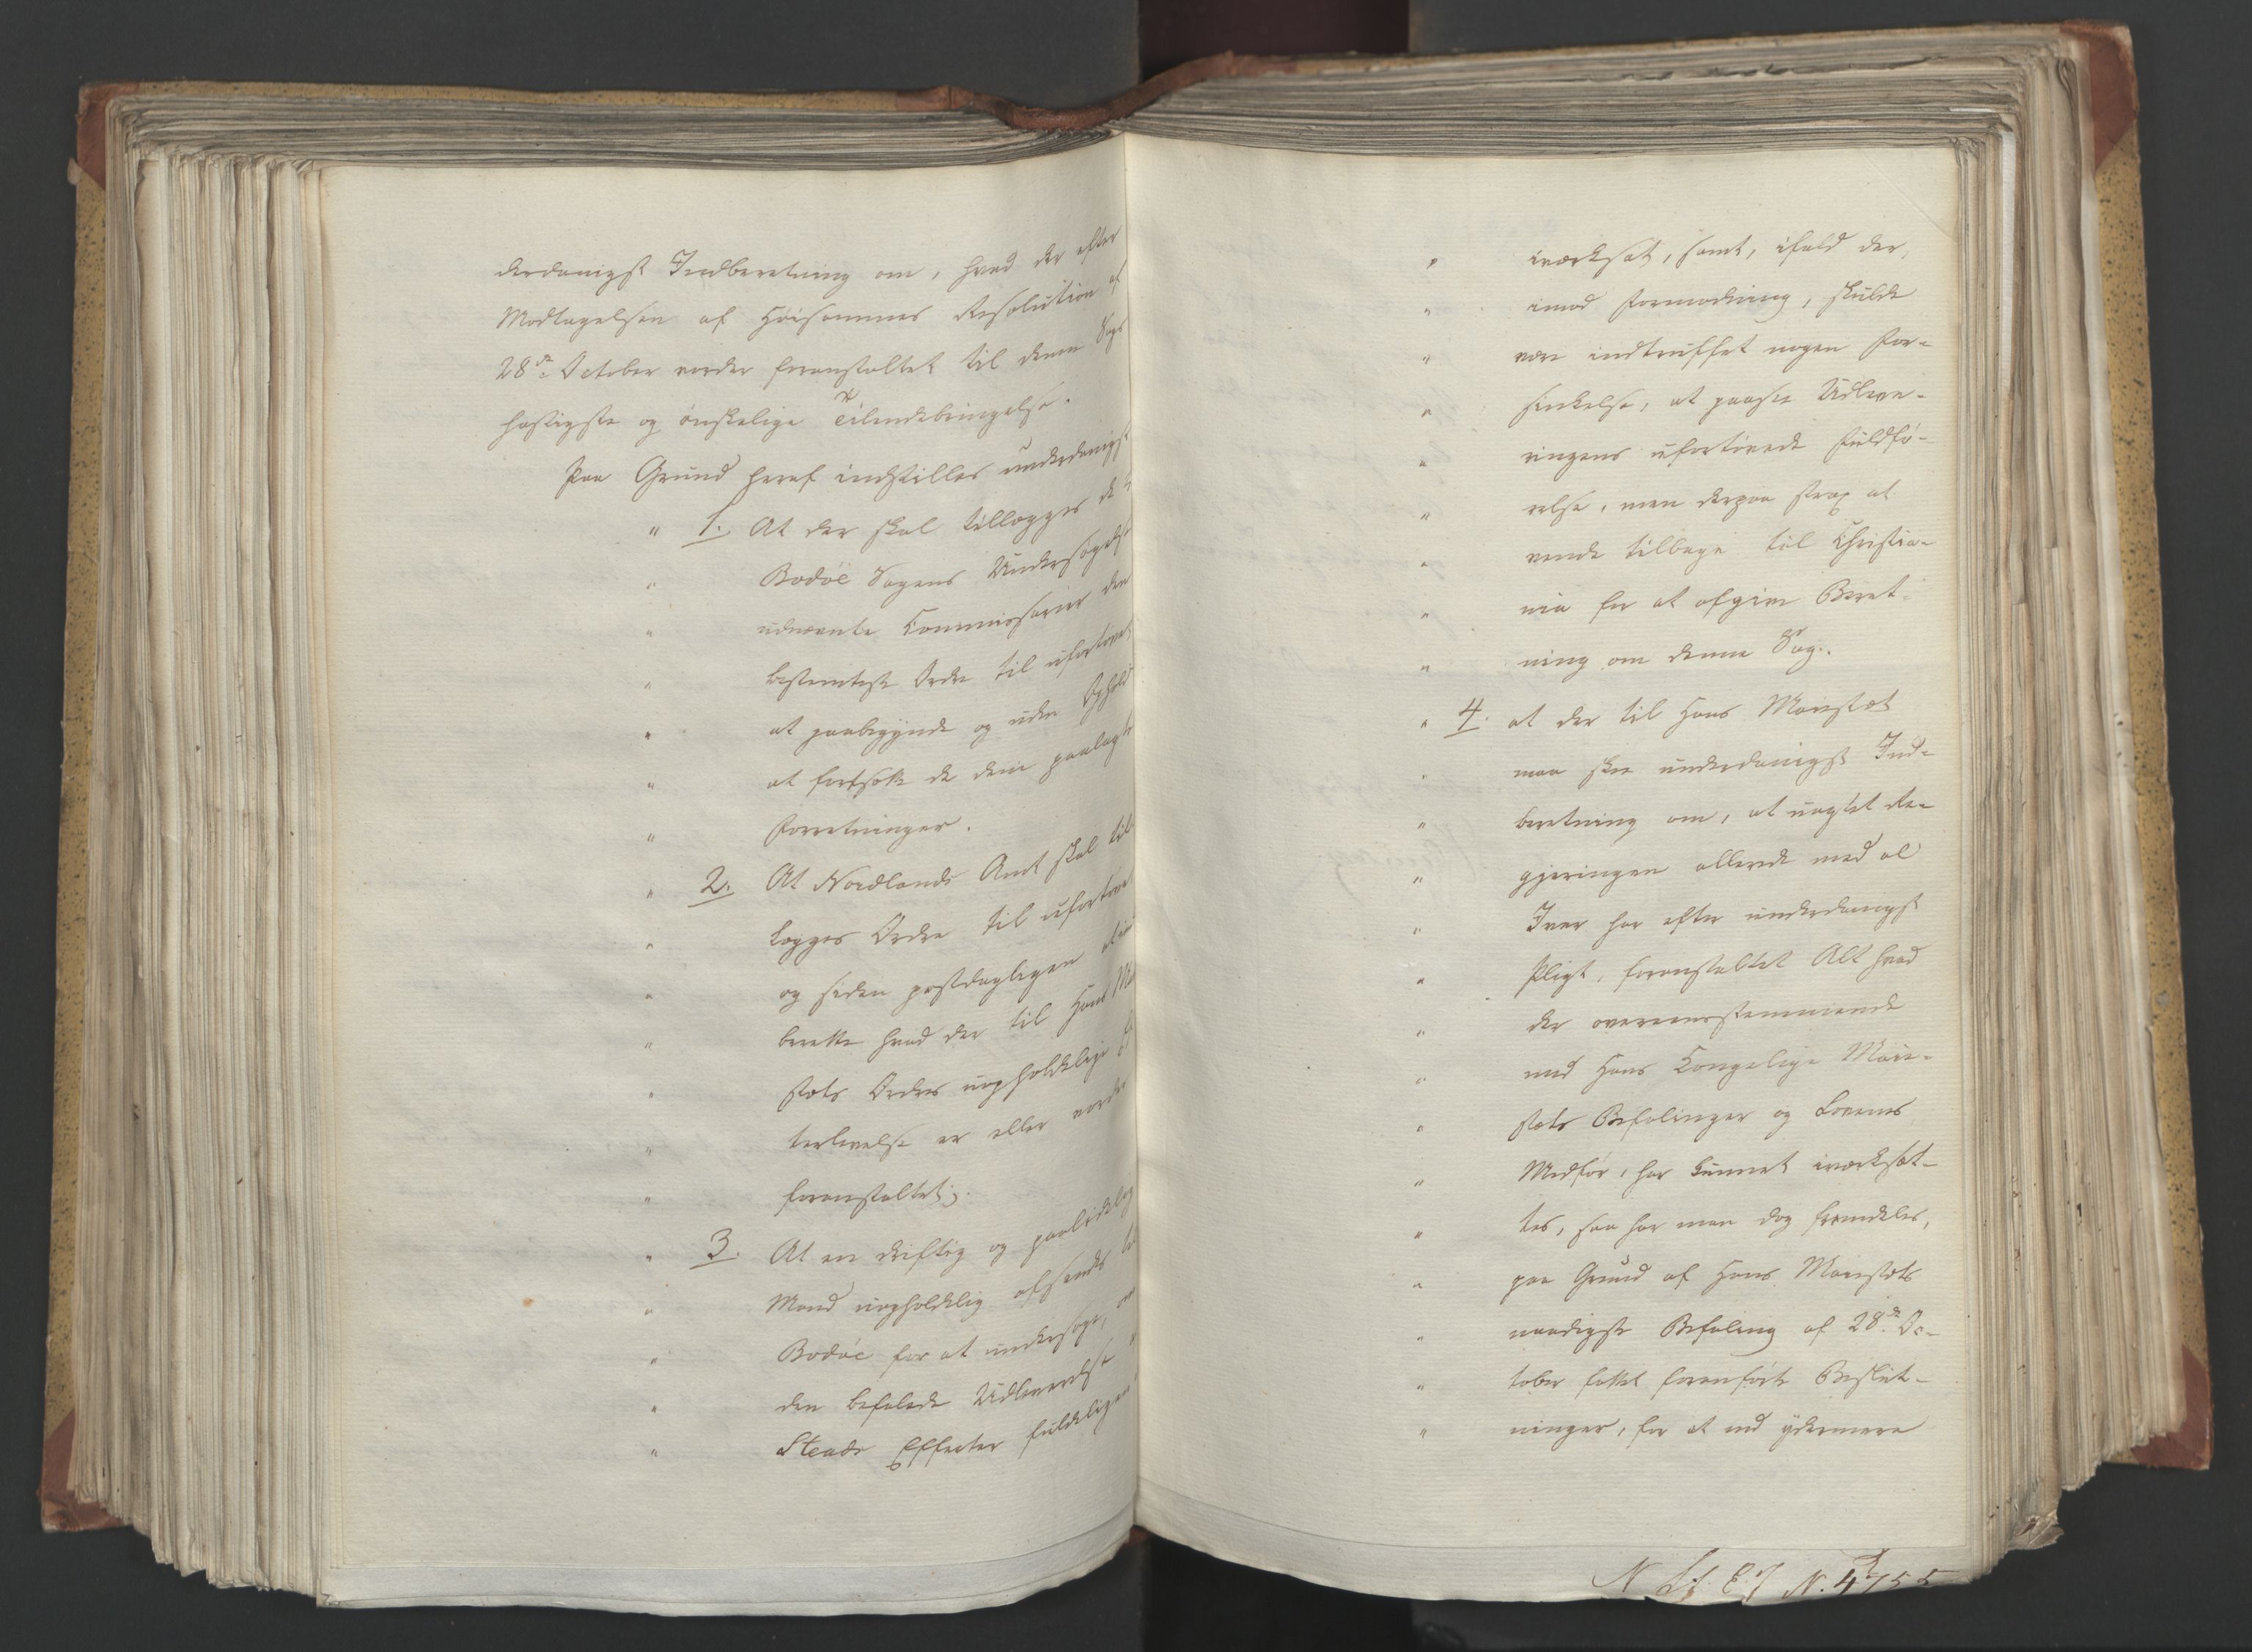 derdanigst Indberetning om, hvad der efter
Modtagelsen af Høisammes Resolution af
28de October vorder foranstaltet til denne Sags
hastigste og ønskelige Tilendebringelse.
Paa Grund heraf indstilles underdanigst
" 1. At der skal tillægges de i
" Bodøe Sagens Undersøgelse
" udnævnte Commissarier den
" bestemteste Ordre til ufortøvet
" at paabegynde og uden Ophold
" at fortsætte de dem paalagte
" Forretninger.
" 2. At Nordlands Amt skal til-
" lægges Ordre til ufortøvet
" og siden postdagligen at ind
" berette hvad der til Hans Ma
" jestæts Ordres uopholdelige Ef
" terlevelse er eller vorder
" foranstaltet;
" 3. At en driftig og paalidelig
" Mand uopholdelig afsendes til
" Bodøe for at undersøge, om
" den befalede Udleverelse af
" Steads Effecter fuldeligen er
" iværksat, samt, ifald der,
" imod Formodning, skulde
" være indtruffet nogen For-
" sinkelse, at paasee Udleve-
" ringens ufortøvede Fuldfø-
" relse, men derpaa strax at
" vende tilbage til Christia-
" nia for at afgive Beret-
" ning om denne Sag.
" 4. at der til Hans Majestæt
" maa skee underdanigst Ind-
" beretning om, at uagtet Re-
" gjeringen allerede med al
" Iver har efter underdanigst
" Pligt, foranstaltet Alt hvad
" der overeensstemmende
" med Hans Kongelige Maje-
" stæts Befalinger og Lovenes
" Medfør, har kunnet iværksæt-
" tes, saa har man dog fremdeles,
" paa Grund af Hans Majestæts
" naadigste Befaling af 28de Oc-
" tober fattet foranførte Beslut-
" ninger, for at end ydermere